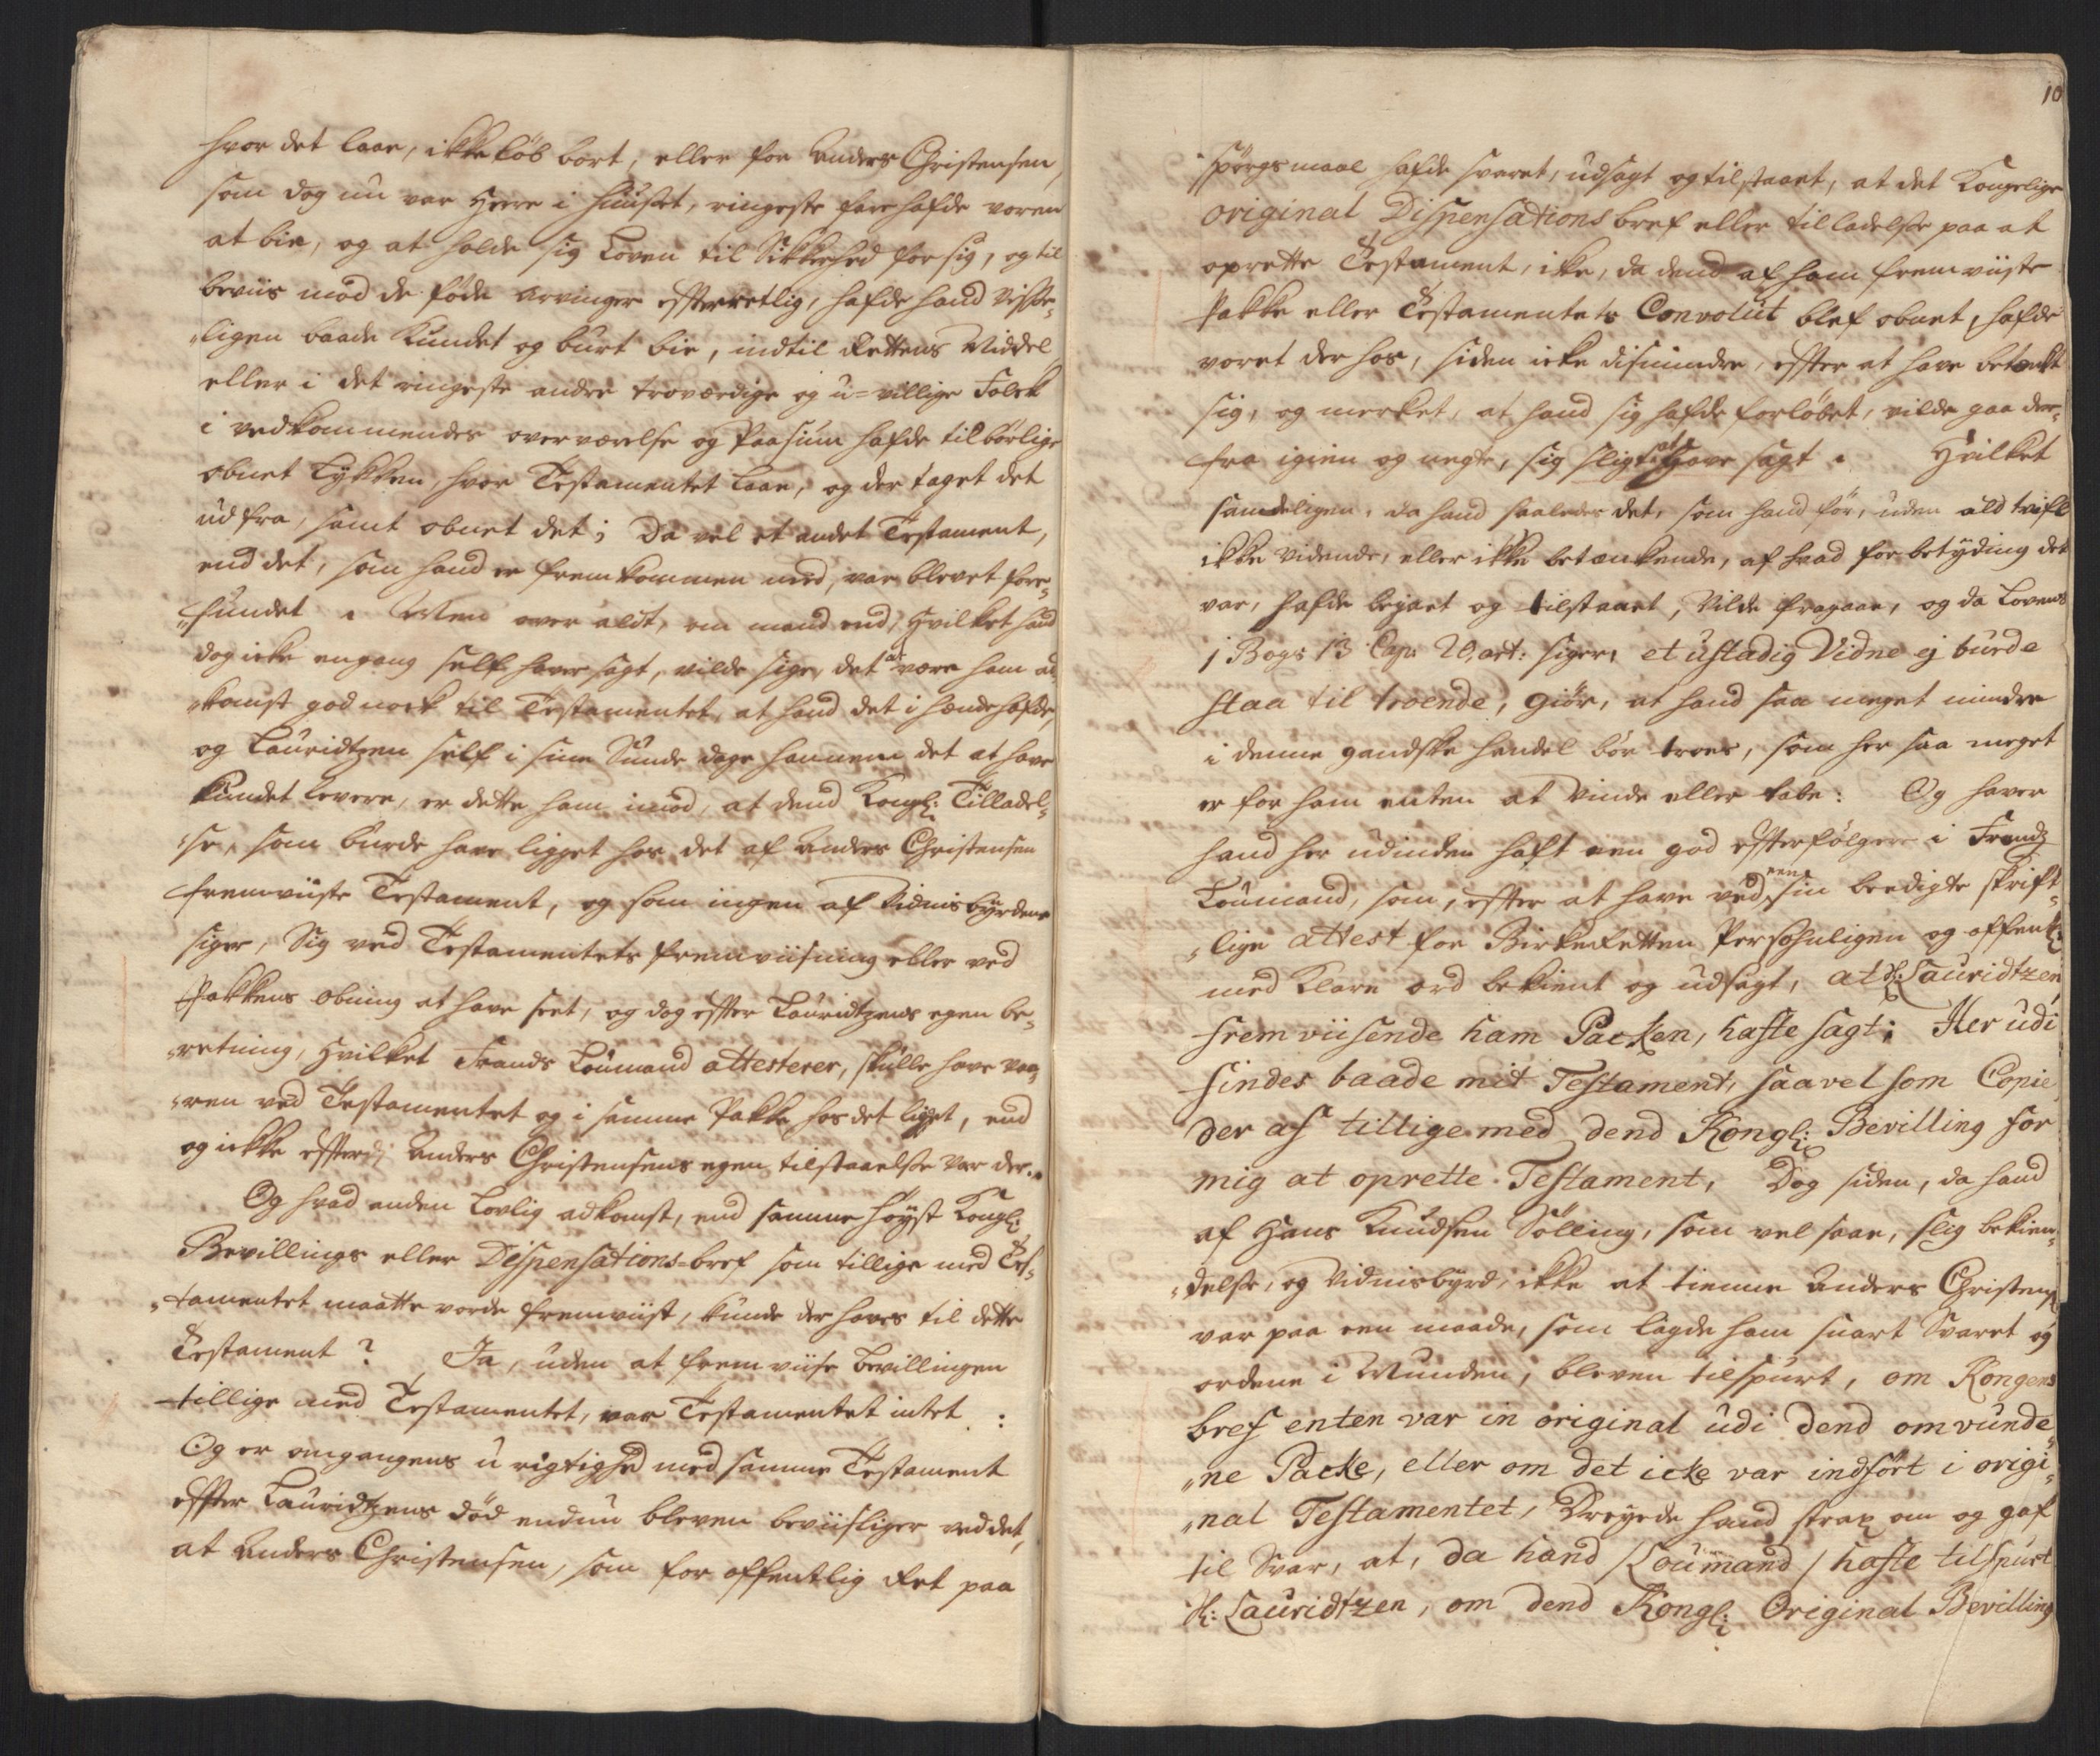 hvor det laae, ikke løb bort, eller for Anders Christensen,
som dog nu var Herre i Huuset, ringeste fare hafde voren
at bie, og at holde sig Loven til Sikkerhed for sig, og til
beviis mod de føde Arvinger effterretlig, hafde hand visse-
"ligen baade kundet og burt bie, indtil Rettens Middel
eller i det ringeste andre troværdige og u=villige Folck
i vedkommendes overværelse og Paasiun hafde tilbørlige
obnet Lykken, hvor Testamentet laae, og der taget det
ud fra, samt obnet det; Da vel et andet Testament,
end det, som hand er fremkommen med, var blevet fore-
"fundet. Men over alt, om mand end, hvilket hand
dog icke engang self haver sagt, vilde sige, det at være ham ad-
"komst god nock til Testamentet, at hand det i hænde hafde,
og Lauridtzen self i sine Sunde dage hannem det at have
kundet levere, er dette ham imod, at dend Kongl: Tilladel-
"se, som burde have ligget hos det af Anders Christensen
fremviiste Testament, og som ingen af Vidnisbyrdene
siger, Sig ved Testamentets fremviisning eller ved
Pakkens obning at have seet, og dog effter Lauridtzens egen be-
"retning, hvilket Frands Loumand attesterer, skulle have vaa-
"ren ved Testamentet og i samme Pakke hos det ligget, end
og ickke effter Anders Christensens egen tilstaaelse var der.
Og hvad anden Lovlig adkomst, end samme høyst Kongl:
Bevillings eller Dispensations=bref som tillige med Tes-
"tamentet maatte vorde fremviist, kunde der haves til dette
Testament? Ja, uden at fremviise Bevillingen
tillige med Testamentet, var Testamentet intet:
Og er omgangens u rigtighed med samme Testament
effter Lauridtzens død endnu bleven beviisliger ved det,
at Anders Christensen, som for offentlig Ret paa
10
Spørgsmaal hafde svaret, udsagt og tilstaaet, at det Kongelige
original Dispensations bref eller tilladelse paa at
oprette Testament, icke, da dend af ham fremviiste
Pakke eller Testamentets Convolut blef obnet, hafde
voret der hos, siden icke disminder, effter at have betænkt
sig, og merket, at hand sig hafde forløbet, vilde gaa der-
fra igien og negte, sig sligt at have sagt. Hvilket
samdeligen, da hand saaledes det, som hand før, uden ald tvifl
ikke vidende, eller ikke betænkende, af hvad for betyding det
var, hafde bejaet og tilstaaet, Vilde fragaae, og da Lovens
1 Bogs 13 Cap: 20, art: siger, et ustadig Vidne ej burde
staa til troende, giør, at hand saa meget mindre
i denne gandske handel bør troes, som her saa meget
er for ham enten at vinde eller tabe: Og haver
hand her udinden haft een god efterfølger i Frandz
Loumand, som, effter at have ved een sin beedigte skrift-
"lige attest for BirkeRetten Persohnligen og offentl:
med Klare ord bekient og udsagt, at H: Lauridtzen,
fremviisende ham Packen, hafte sagt: Her udi
findes baade mit Testament, saavelsom Copie
der af tillige med dend Kongl: Bevilling for
mig at oprette Testament, Dog siden, da hand
af Hans Knudsen Sølling, som vel saae, slig bekien-
"delse, og Vidnisbyrd, ikke at tienne Anders Christens:
var paa een maade, som lagde ham snart Svaret og
ordene i Munden, bleven tilspurt, om Kongens
bref enten var in original udi dend omvunde-
"ne Packe, eller om det icke var indført i origi-
"nal Testamentet, Dreyede hand strax om og gaf
til Svar, at, da hand /Loumand/ hafte tilspurt
H: Lauridtzen, om dend Kongl: Original Bevilling